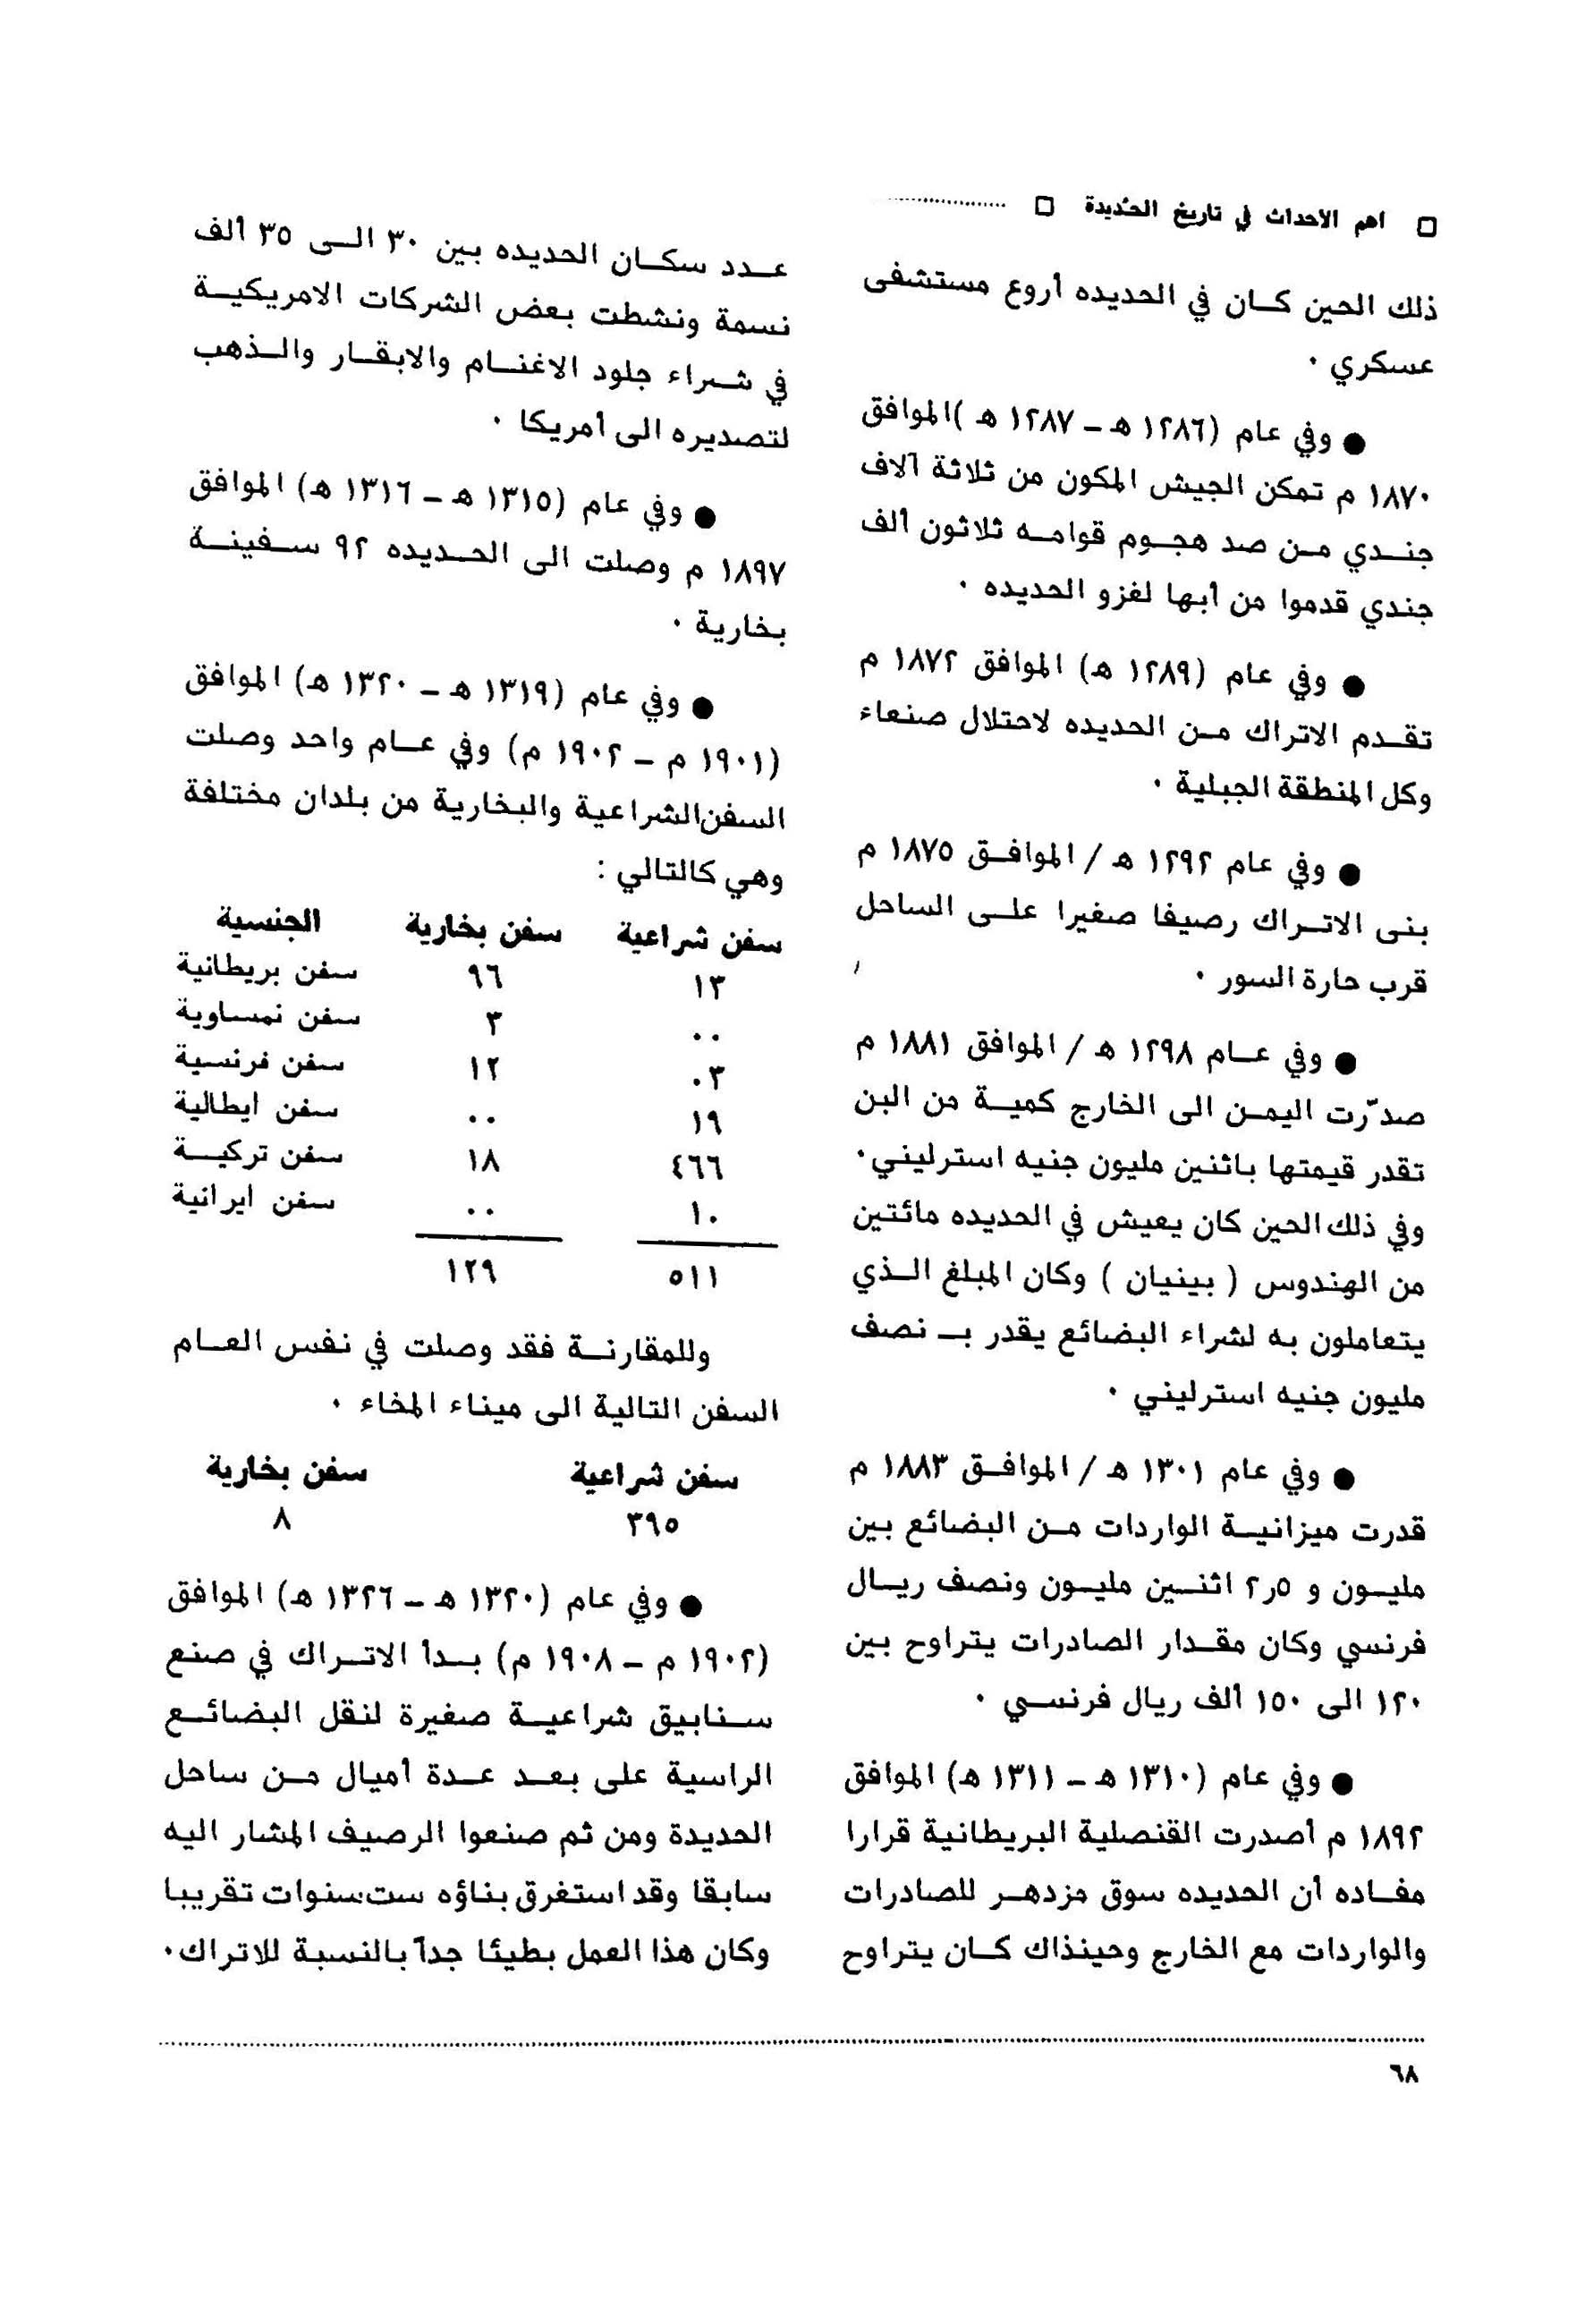 □ اهم الاحداث في تاريخ الحديدة □
ذلك الحين كان في الحديده أروع مستشفى
عسكري ٠
● وفي عام (١٢٨٦ هـ – ١٢٨٧ هـ )الموافق
١٨٧٠ م تمكن الجيش المكون من ثلاثة آلاف
جندي من صد هجوم قوامه ثلاثون ألف
جندي قدموا من أبها لغزو الحديده ٠
● وفي عام (١٢٨٩ هـ) الموافق ١٨٧٢ م
تقدم الاتراك من الحديده لاحتلال صنعاء
وكل المنطقة الجبلية ٠
● وفي عام ١٢٩٢ هـ / الموافق ١٨٧٥ م
بنى الاتراك رصيفا صغيرا على الساحل
قرب حارة السور ٠
● وفي عام ١٢٩٨ هـ / الموافق ١٨٨١ م
صدّرت اليمن الى الخارج كمية من البن
تقدر قيمتها باثنين مليون جنيه استرليني٠
وفي ذلك الحين كان يعيش في الحديده مائتين
من الهندوس ( بينيان ) وكان المبلغ الذي
يتعاملون به لشراء البضائع يقدر بـ نصف
مليون جنيه استرليني ٠
● وفي عام ١٣٠١ هـ / الموافق ١٨٨٣ م
قدرت ميزانية الواردات من البضائع بين
مليون و ٢٫٥ اثنين مليون ونصف ريال
فرنسي وكان مقدار الصادرات يتراوح بين
١٢٠ الى ١٥٠ ألف ريال فرنسي ٠
● وفي عام (١٣١٠ هـ – ١٣١١ هـ) الموافق
١٨٩٢ م أصدرت القنصلية البريطانية قرارا
مفاده أن الحديده سوق مزدهر للصادرات
والواردات مع الخارج وحينذاك كان يتراوح
عدد سكان الحديده بين ٣٠ الى ٣٥ ألف
نسمة ونشطت بعض الشركات الامريكية
في شراء جلود الاغنام والابقار والذهب
لتصديره الى أمريكا ٠
● وفي عام (١٣١٥ هـ – ١٣١٦ هـ) الموافق
١٨٩٧ م وصلت الى الحديده ٩٢ سفينة
بخارية ٠
● وفي عام (١٣١٩ هـ – ١٣٢٠ هـ) الموافق
(١٩٠١ م – ١٩٠٢ م) وفي عام واحد وصلت
السفن الشراعية والبخارية من بلدان مختلفة
وهي كالتالي :
سفن شراعية سفن بخارية الجنسية
١٣ ٩٦ سفن بريطانية
٠٠ ٣ سفن نمساوية
٠٣ ١٢ سفن فرنسية
١٩ ٠٠ سفن ايطالية
٤٦٦ ١٨ سفن تركية
١٠ ٠٠ سفن ايرانية
٥١١ ١٢٩
وللمقارنة فقد وصلت في نفس العام
السفن التالية الى ميناء المخاء ٠
سفن شراعية سفن بخارية
٣٩٥ ٨
● وفي عام (١٣٢٠ هـ – ١٣٢٦ هـ) الموافق
(١٩٠٢ م – ١٩٠٨ م) بدأ الاتراك في صنع
سنابيق شراعية صغيرة لنقل البضائع
الراسية على بعد عدة أميال من ساحل
الحديدة ومن ثم صنعوا الرصيف المشار اليه
سابقا وقد استغرق بناؤه ست سنوات تقريبا
وكان هذا العمل بطيئا جداً بالنسبة للاتراك٠
٦٨